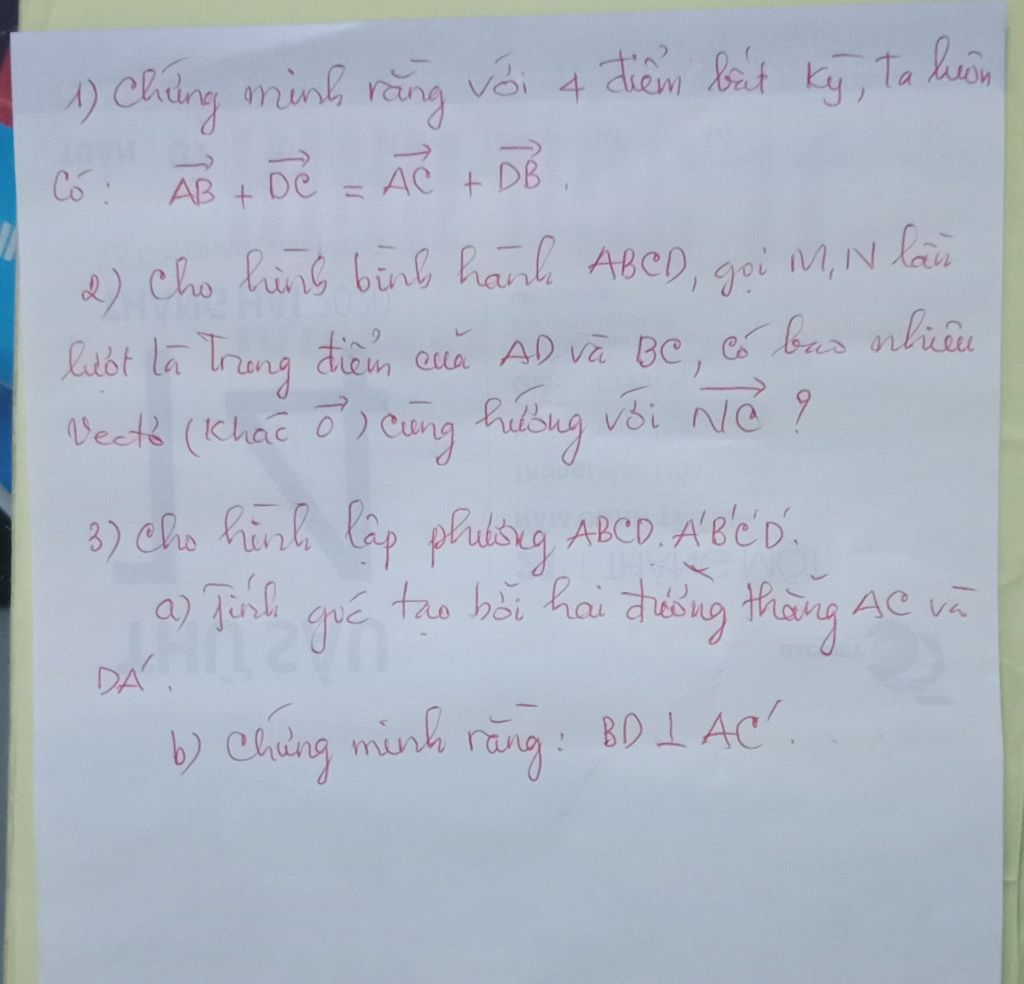 1) Chứng minh rằng với 4 điểm bất kỳ, ta luôn
Có: AB + DC = AC + DB.
2) Cho hình bình hành ABCD, gọi M, N lần
lượt là Trung điểm của AD và BC, có bao nhiêu
Vectơ (khác O) cùng hướng với NC ?
3) Cho hình lập phương ABCD. A'B'C'D'.
a) Tính góc tạo bởi hai đường thẳng AC và
DA'.
b) Chứng minh rằng: BD ⊥ AC'.